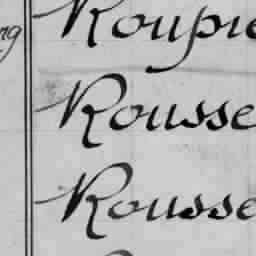 Roupie
Rousse
Rousse